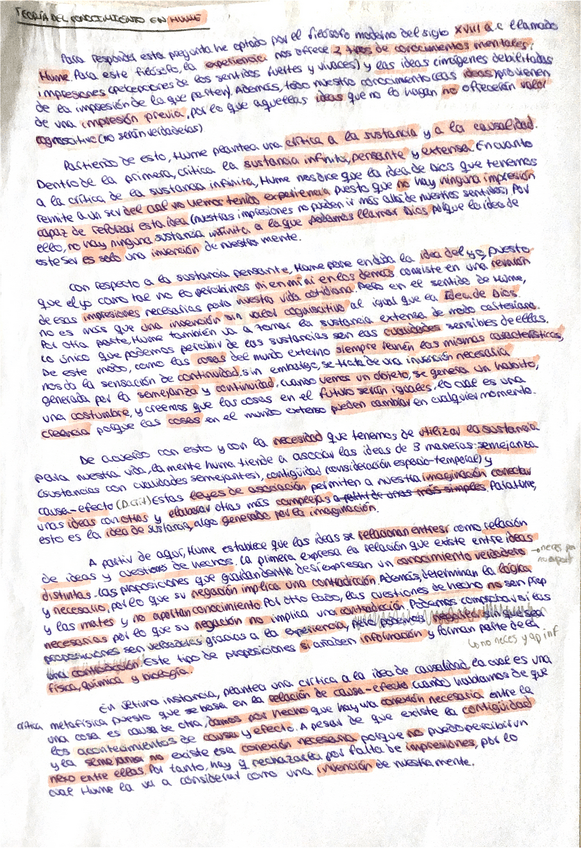 TEORÍA DEL CONOCIMIENTO EN HUME
Para responder esta pregunta he optado por el filósofo moderno del siglo XVIII d.C llamado
Hume. Para este filósofo, la experiencia nos ofrece 2 tipos de conocimientos mentales:
impresiones (percepciones de los sentidos fuertes y vivaces) y las ideas (imágenes debilitadas
de la impresión de la que parten). Además, todo nuestro conocimiento (las ideas) provienen
de una impresión previa, por lo que aquellas ideas que no lo hagan no ofrecerán valor
cognoscitivo (no serán verdaderas)
Partiendo de esto, Hume plantea una crítica a la sustancia y a la causalidad.
Dentro de la primera, critica la sustancia infinita, pensante y extensa. En cuanto
a la crítica de la sustancia infinita, Hume nos dice que la idea de Dios que tenemos
remite a un ser del cual no hemos tenido experiencia puesto que no hay ninguna impresión
capaz de reforzar esta idea (nuestras impresiones no pueden ir más allá de nuestros sentidos). Por
ello, no hay ninguna sustancia infinita a la que podamos llamar Dios porque la idea de
este ser es solo una invención de nuestra mente.
Con respecto a la sustancia pensante, Hume pone en duda la idea del yo, puesto
que el yo como tal no lo percibimos ni en mí ni en los demás consiste en una reunión
de esas impresiones necesarias para nuestra vida cotidiana. Pero en el sentido de Hume,
no es más que una invención sin valor cognoscitivo al igual que la idea de Dios.
Por otra parte, Hume también va a tomar la sustancia extensa de modo cartesiano.
Lo único que podemos percibir de las sustancias son las cualidades sensibles de ellas.
De este modo, como las cosas del mundo externo siempre tienen las mismas características,
nos da la sensación de continuidad. sin embargo, se trata de una invención necesaria
generada por la semejanza y continuidad, cuando vemos un objeto, se genera un hábito,
una costumbre, y creemos que las cosas en el futuro serán iguales, lo cual es una
creencia porque las cosas en el mundo externo pueden cambiar en cualquier momento.
De acuerdo con esto y con la necesidad que tenemos de utilizar la sustancia
para nuestra vida, la mente humana tiende a asociar las ideas de 3 maneras: semejanza
(sustancias con cualidades semejantes), contigüidad (consideración espacio-temporal) y
causa-efecto Estas leyes de asociación permiten a nuestra imaginación conectar
unas ideas con otras y elaborar otras más complejas a partir de otras más simples. Para Hume,
esto es la idea de sustancia, algo generado por la imaginación.
A partir de aquí, Hume establece que las ideas se relacionan entre sí como relación
de ideas y cuestiones de hechos. La primera expresa la relación que existe entre ideas
distintas. Las proposiciones que expresan un conocimiento verdadero
y necesario, por lo que su negación implica una contradicción. Además, determinan la lógica
y las mates y no aportan conocimiento Por otro lado, las cuestiones de hecho no son prop
necesarias por lo que su negación no implica una contradicción. Podemos comprobar si las
proposiciones son verdaderas gracias a la experiencia, pero podemos sin que sea
una contradicción. Este tipo de proposiciones sí añaden información y forman parte de la
física, química y biología.
En última instancia, plantea una crítica a la idea de causalidad, la cual es una
crítica metafísica puesto que se basa en la relación de causa-efecto. Cuando hablamos de que
una cosa es causa de otra, damos por hecho que hay una conexión necesaria entre la
los acontecimientos de causa y efecto. A pesar de que existe la contigüidad
y la semejanza no existe esa conexión necesaria porque no puedo percibir un
nexo entre ellas. Por tanto, hay q rechazarla por falta de impresiones, por lo
cual Hume la va a considerar como una invención de nuestra mente.